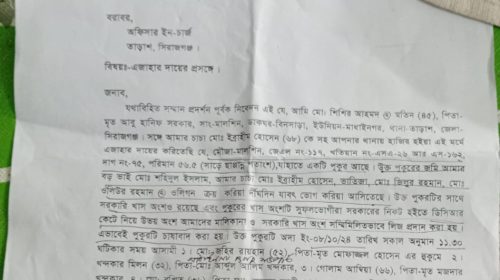 বরাবর,
অফিসার ইন-চার্জ
তাড়াশ, সিরাজগঞ্জ।
বিষয়ঃ-এজাহার দায়ের প্রসঙ্গে।
জনাব,
যথাবিহিত সম্মান প্রদর্শন পূর্বক নিবেদন এই যে, আমি মোঃ শিশির আহমদ @ মতিন (৪৫), পিতা-
মৃত আবু হানিফ সরকার, সাং-মালশিন, ডাকঘর-বিনসাড়া, ইউনিয়ন-মাধাইনগর, থানা-তাড়াশ, জেলা-
সিরাজগঞ্জ। সঙ্গে আমার চাচা মোঃ ইব্রাহীম হোসেন (৬৮) কে সহ আপনার থানায় হাজির হইয়া এই মর্মে
এজাহার দায়ের করিতেছি যে, মৌজা-মালশিন, জেএল নং-১১৭, খতিয়ান নং-এসএ-২৬ আর এস-১৬২,
দাগ নং-৭৫, পরিমান ৫৬.৫ (সাড়ে ছাপ্পান্ন শতাংশ),যাহাতে একটি পুকুর আছে। উক্ত পুকুরের জমি আমার
বড় ভাই মোঃ শহিদুল ইসলাম, আমার চাচা মোঃ ইব্রাহীম হোসেন, ভাতিজা মোঃ জিল্লুর রহমান, মোঃ
ওলিউর রহমান @ ওলিগন ক্রয় করিয়া দীর্ঘদিন যাবৎ ভোগ করিয়া আসিতেছে। উক্ত পুকরটির সাথে
সরকারি খাস অংশও রয়েছে এবং পুকুরের খাস অংশটি সুফলভোগীরা সরকারের নিকট হইতে ডিসিআর
কেটে নিয়ে উভয় অংশ আমাদের মালিকানা ও সরকারি খাস অংশ সম্মিলিতভাবে লিজ প্রদান করা হয়।
এভাবেই পুকুরটি চাষাবাদ করা হয়। উক্ত পুকুরটি অদ্য ইং-০৮/১০/২৪ তারিখ সকাল অনুমান ১১.৩০
ঘটিকার সময় আসামী ১। মোঃ-জহির রায়হান (৫২), পিতা-মৃত মোফাজ্জল হোসেন এর হুকুমে ২।
খন্দকার মিলন (৩২), পিতা-মোঃ আব্দুল আলিম খন্দকার, ৩। গোলাম আম্বিয়া (৬৬), পিতা-মৃত মজদার